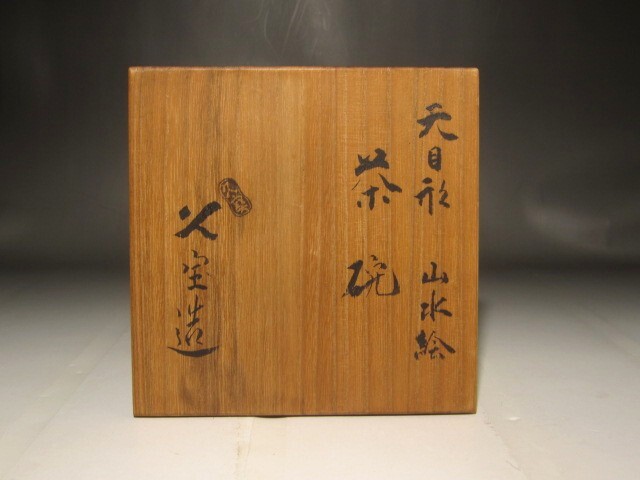 天目形 山水絵
茶碗
久宝造